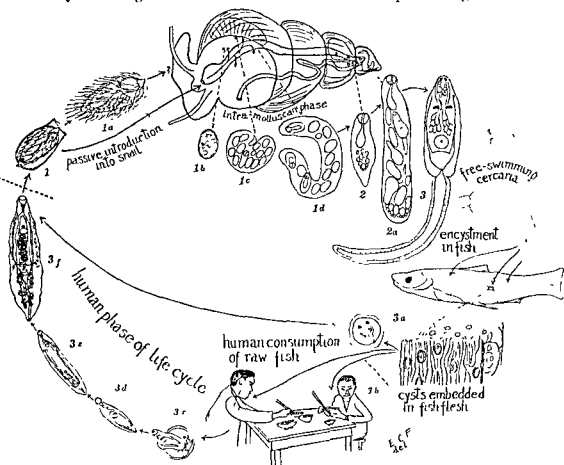 1a
1
passive introduction
into snail
intra-molluscan phase
1b
1c
1d
2
2a
3
free-swimming
cercaria
encystment
in fish
3a
cysts embedded
in fish flesh
3b
human consumption
of raw fish
human phase of life cycle
3f
3e
3d
3c
E C F
del